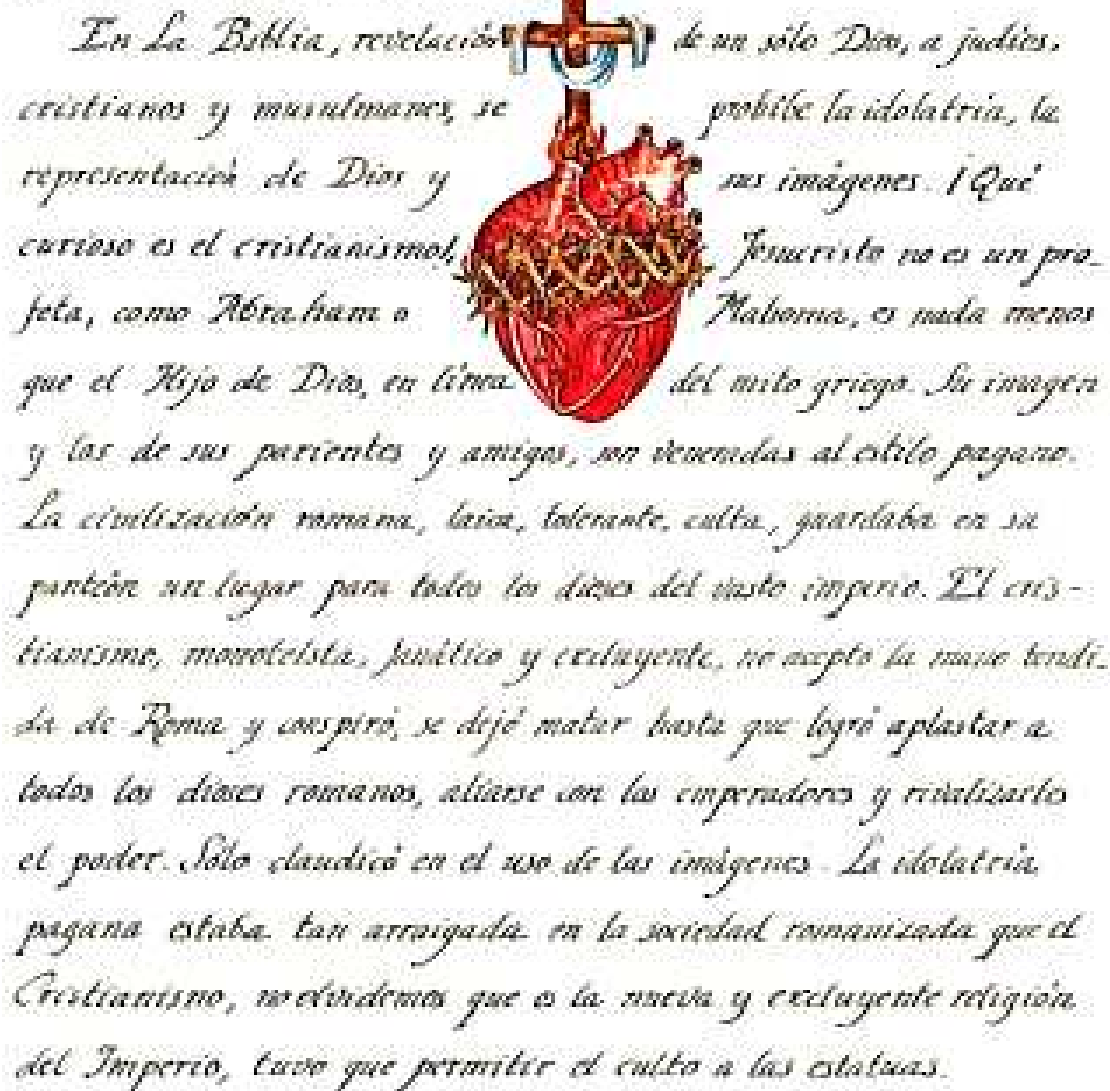 En La Biblia, revelación de un sólo Dios, a judíos,
cristianos y musulmanes, se prohibe la idolatría, la
representación de Dios y sus imágenes. ¡Qué
curioso es el cristianismo!, Jesucristo no es un pro-
feta, como Abraham o Mahoma, es nada menos
que el Hijo de Dios, en línea del mito griego. Su imagen
y las de sus parientes y amigos, son veneradas al estilo pagano.
La civilización romana, laica, tolerante, culta, guardaba en su
panteón un lugar para todos los dioses del vasto imperio. El cris-
tianismo, monoteísta, fanático y excluyente, no acepto la mano tendi-
da de Roma y conspiró, se dejó matar hasta que logró aplastar a
todos los dioses romanos, aliarse con los emperadores y rivalizarles
el poder. Sólo claudicó en el uso de las imágenes. La idolatría
pagana estaba tan arraigada en la sociedad romanizada que el
Cristianismo, no olvidemos que es la nueva y excluyente religión
del Imperio, tuvo que permitir el culto a las estatuas.